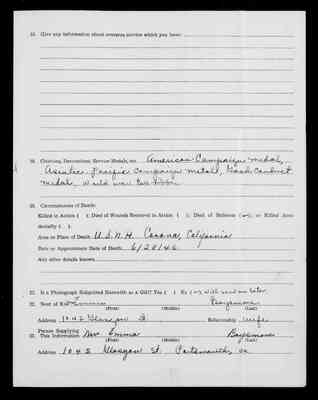 18. Give any information about overseas service which you have:
19. Citations, Decorations, Service Medals, etc. American Campaign medal,
Asiatic Pacific Campaign medal, Good Conduct
medal, World War two ribbon
20. Circumstances of Death:
Killed in Action ( ); Died of Wounds Received in Action ( ); Died of Sickness (✓); or Killed Acci-
dentally ( ).
Area or Place of Death: U.S.N.H. Corona, California
Date or Approximate Date of Death: 6/28/46
Any other details known:
21. Is a Photograph Submitted Herewith as a Gift? Yes ( ) No (✓) will send one later
22. Next of Kin Emma
(First) (Middle) (Last)
Address 1042 Glasgow St. Relationship wife
23. Person Supplying
This Information Mrs. Emma
(First) (Middle) (Last)
Address 1042 Glasgow St. Portsmouth, Va